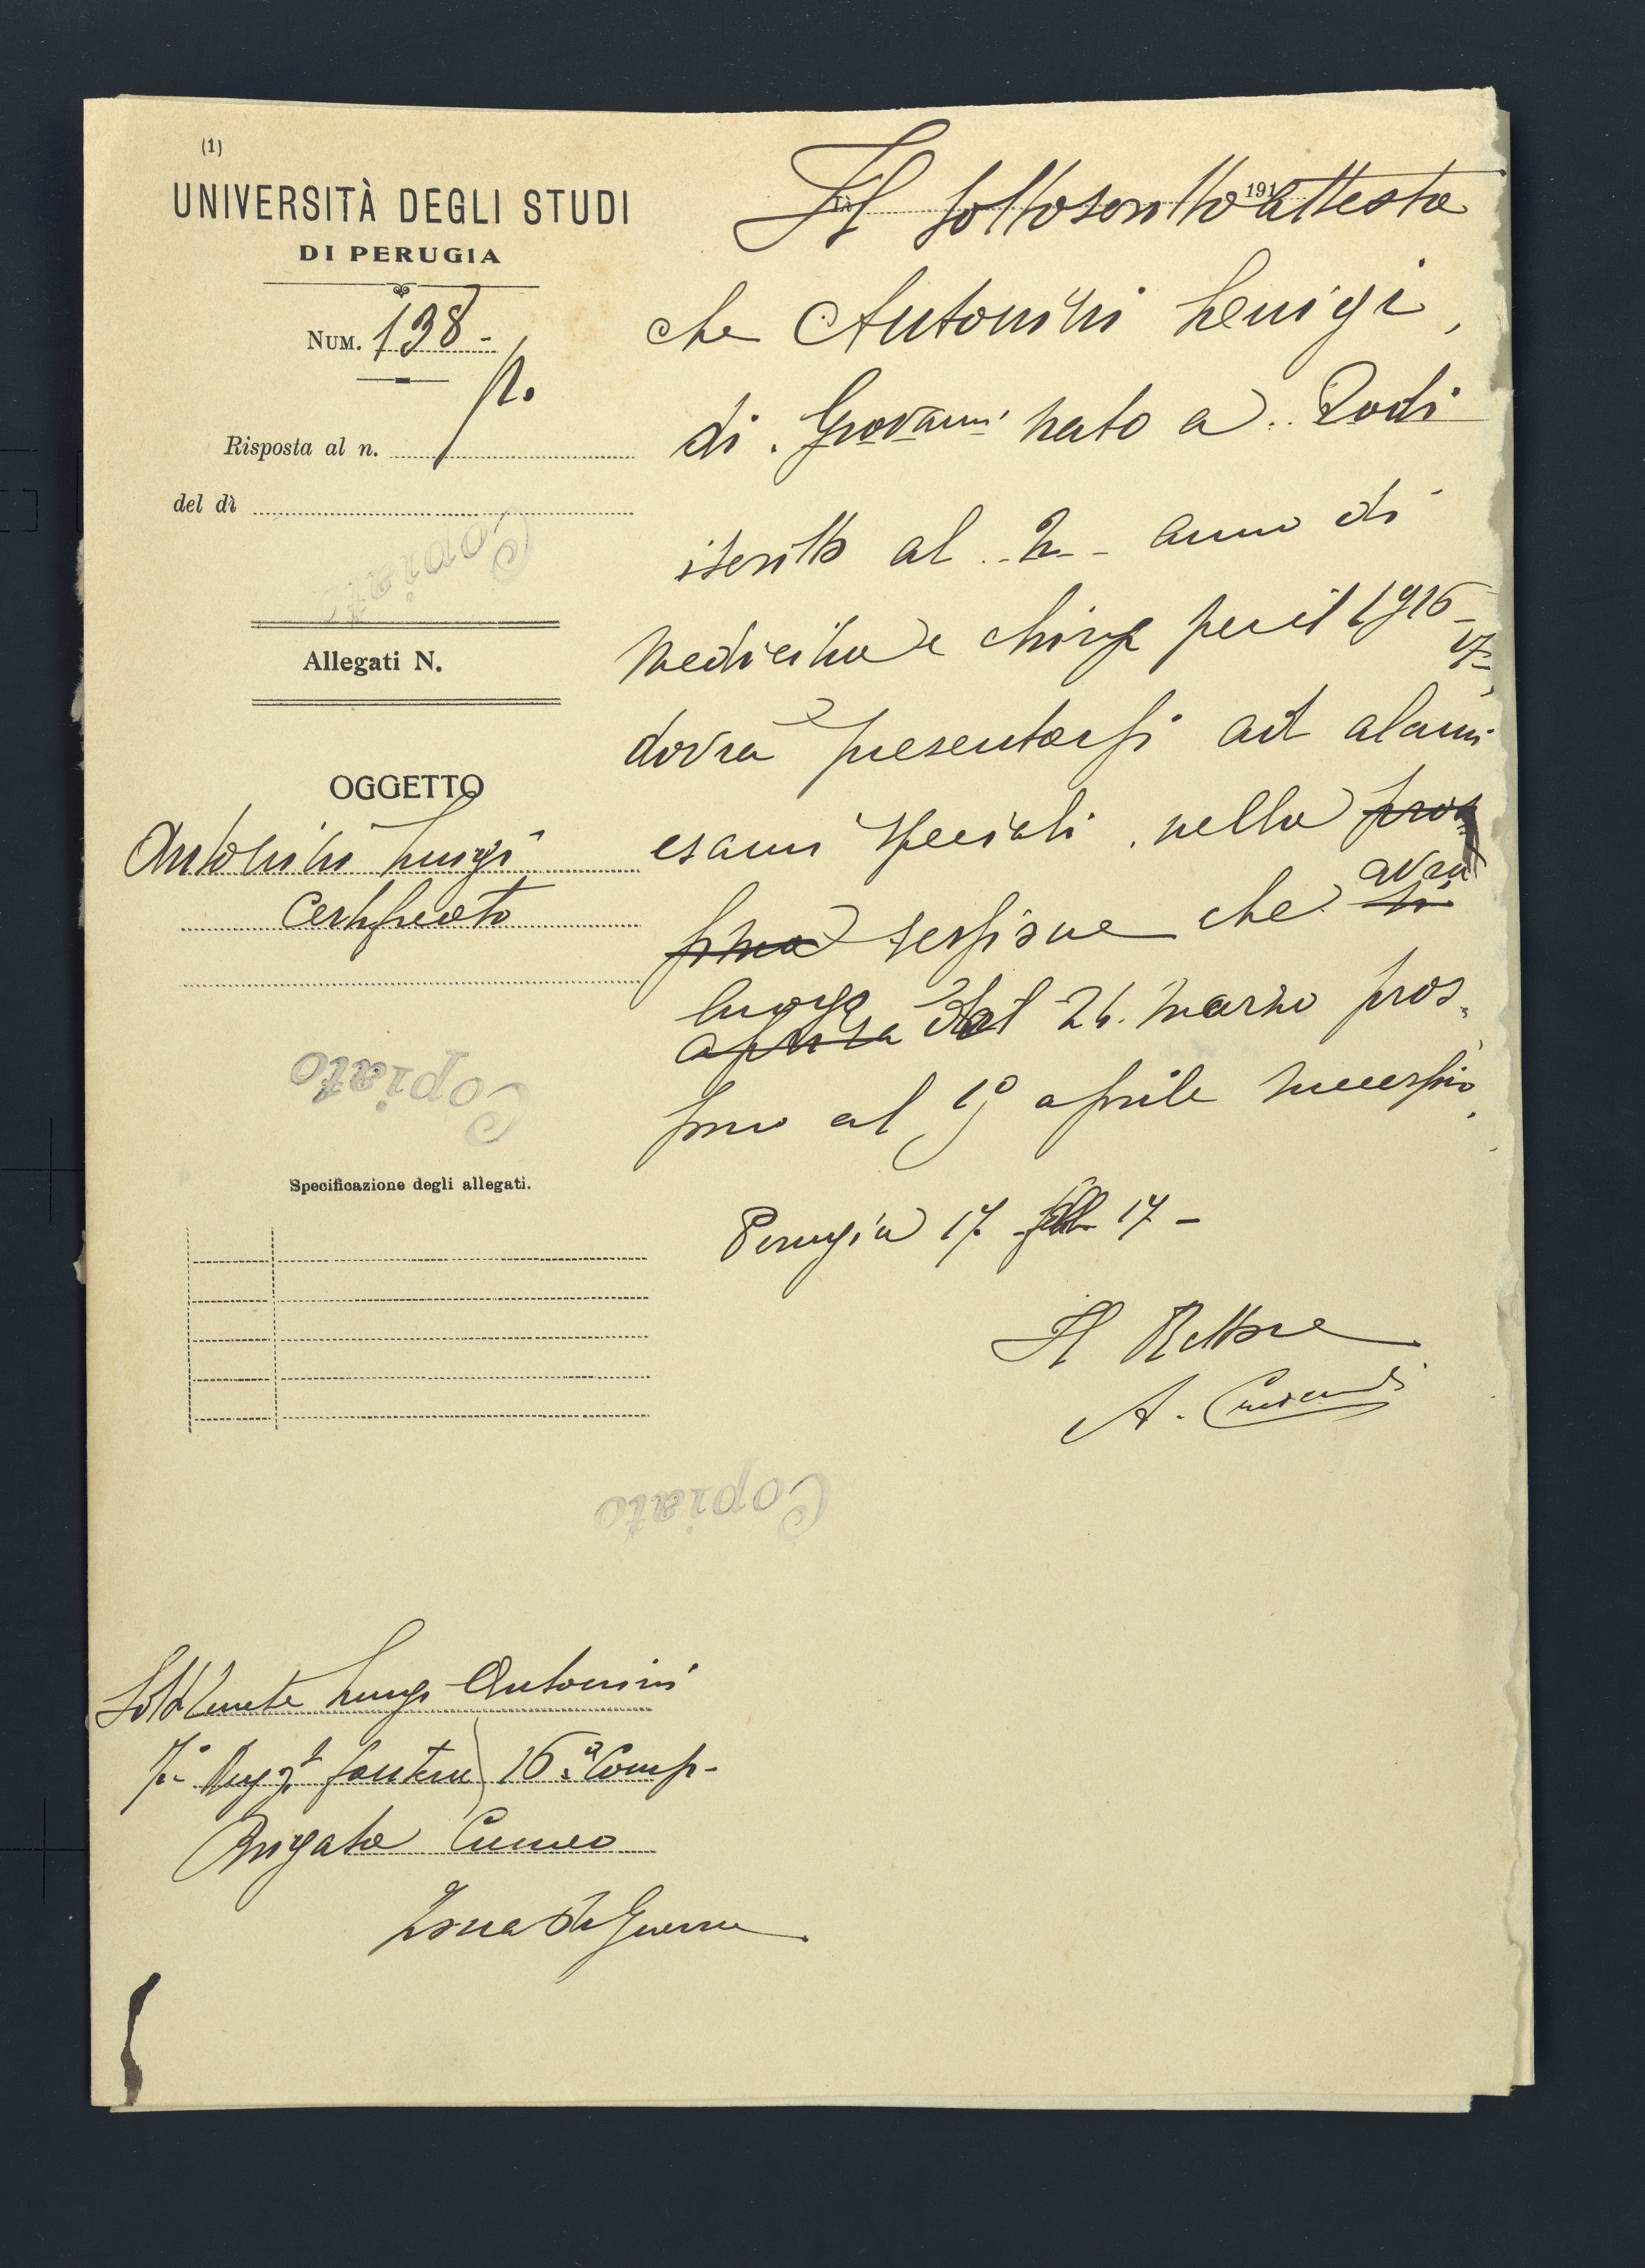 (1)
UNIVERSITÀ DEGLI STUDI
DI PERUGIA
NUM. 138 -
p.
Risposta al n.
del dì
Copiato
Allegati N.
OGGETTO
Antonini Luigi
Certificato
Copiato
Specificazione degli allegati.
Lì 191
Il sottoscritto attesta
che Antonini Luigi,
di Giovanni nato a Todi
iscritto al 2 anno di
Medicina e Chirg per il 1916-
17-,
dovrà presentarsi ad alcuni
esami speciali, nella pros
avrà
sima sessione che si
luogo
aprirà dal 26 marzo pros.
simo al 1° aprile successivo.
Perugia 17 febb 17 -
Il Rettore
A.
Copiato
Luigi Antonini
7° Regg.t fanteria) 16ª Comp.
Brigata Cuneo
Zona di Guerra